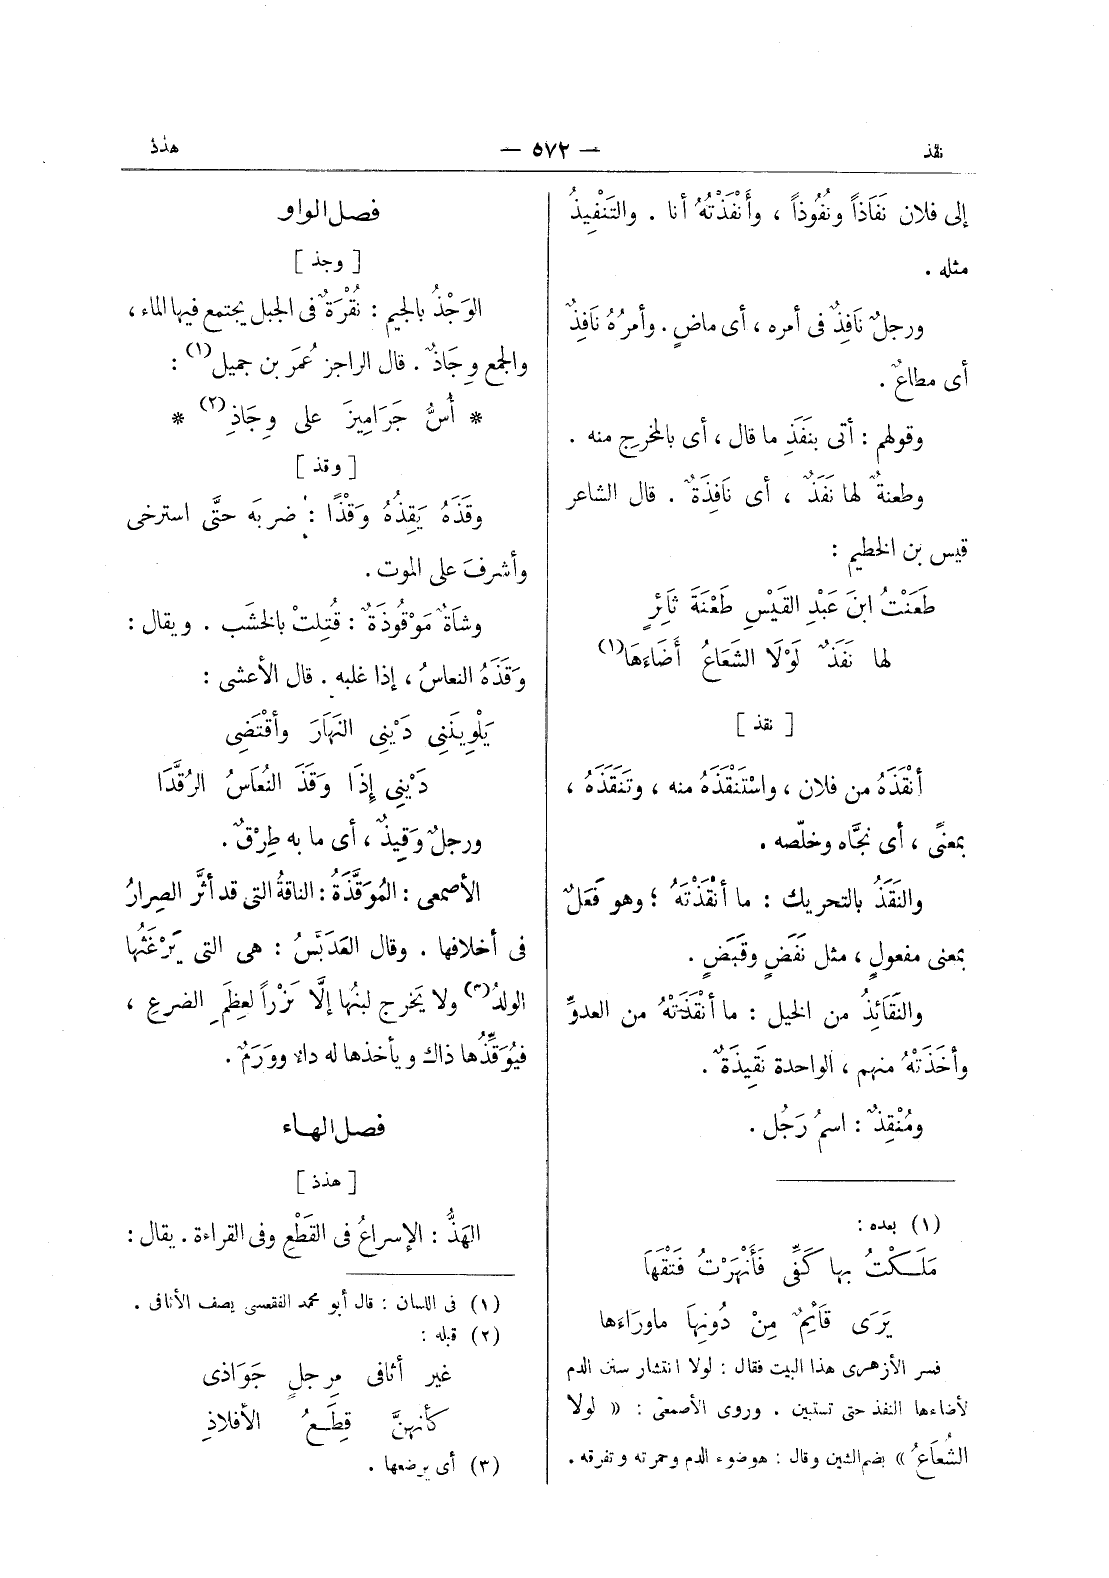 نقذ
— ٥٧٢ —
هذذ
إلى فلان نَفَاذاً ونُفُوذاً ، وأَنْفَذْتُهُ أنا . والتَنْفِيذُ
مثله .
ورجلٌ نَافِذٌ فى أمره ، أى ماضٍ . وأمرُهُ نَافِذٌ
أى مطاعٌ .
وقولهم : أتى بنَفَذِ ما قال ، أى بالمخرجِ منه .
وطعنةٌ لها نَفَذٌ ، أى نَافِذَةٌ . قال الشاعر
قيس بن الخطيم :
طَعَنْتُ ابنَ عَبْدِ القَيْسِ طَعْنَةَ ثَائِرٍ
لها نَفَذٌ لَوْلَا الشَعَاعُ أَضَاءَهَا(١)
[ نقذ ]
أَنْقَذَهُ من فلان ، واسْتَنْقَذَهُ منه ، وتَنَقَّذَهُ ،
بمعنًى ، أى نجَّاه وخلّصه .
والنَقَذُ بالتحريك : ما أَنْقَذْتَهُ ؛ وهو فَعَلٌ
بمعنى مفعولٍ ، مثل نَفَضٍ وقَبَضٍ .
والنَقَائِذُ من الخيل : ما أَنْقَذَتْهُ من العدوِّ
وأَخَذَتْهُ منهم ، الواحدة نَقِيذَةٌ .
ومُنْقِذٌ : اسمُ رَجُل .
(١) بعده :
مَلَكْتُ بها كَفِّى فَأَنْهَرْتُ فَتْقَهَا
يَرَى قَائِمٌ مِنْ دُونِهَا ماوَرَاءَها
فسر الأزهرى هذا البيت فقال : لولا انتشار سنن الدم
لأضاءها النفذ حتى تستبين . وروى الأصمعى : « لولا
الشُعَاعُ » بضم الشين وقال : هو ضوء الدم وحمرته وتفرقه .
فصل الواو
[ وجذ ]
الوَجْذُ بالجيم : نُقْرَةٌ فى الجبل يجتمع فيها الماء ،
والجمع وِجَاذٌ . قال الراجز عُمَرَ بن جميل(١) :
* أُسُّ جَرَامِيزَ على وِجَاذِ(٢) *
[ وقذ ]
وقَذَهُ يَقِذُهُ وَقْذًا : ضربَه حتَّى استرخى
وأشرفَ على الموت .
وشاةٌ مَوْقُوذَةٌ : قُتِلتْ بالخشَب . ويقال :
وَقَذَهُ النعاسُ ، إذا غلبه . قال الأعشى :
يَلْوِينَنِى دَيْنِى النَهَارَ وأَقْتَضِى
دَيْنِى إِذَا وَقَذَ النُعَاسُ الرُقَّدَا
ورجلٌ وَقِيذٌ ، أى ما به طِرْقٌ .
الأصمعى : المُوَقَّذَةُ : الناقةُ التى قد أثَّر الصِرارُ
فى أخلافها . وقال العَدَبَّسُ : هى التى يَرْغَثُها
الولدُ(٣) ولا يَخرج لبنُها إلَّا نَزْراً لعِظَمِ الضرعِ ،
فيُوَقِّذُها ذاك ويأخذها له داء ووَرَمٌ .
فصل الهاء
[ هذذ ]
الهَذُّ : الإسراعُ فى القَطْعِ وفى القراءة . يقال :
(١) فى اللسان : قال أبو محمد الفقعسى يصف الأثافى .
(٢) قبله :
غير أثافى مِرجلٍ جَوَاذى
كأنهنَّ قِطَعُ الأفلاذِ
(٣) أى يرضعها .